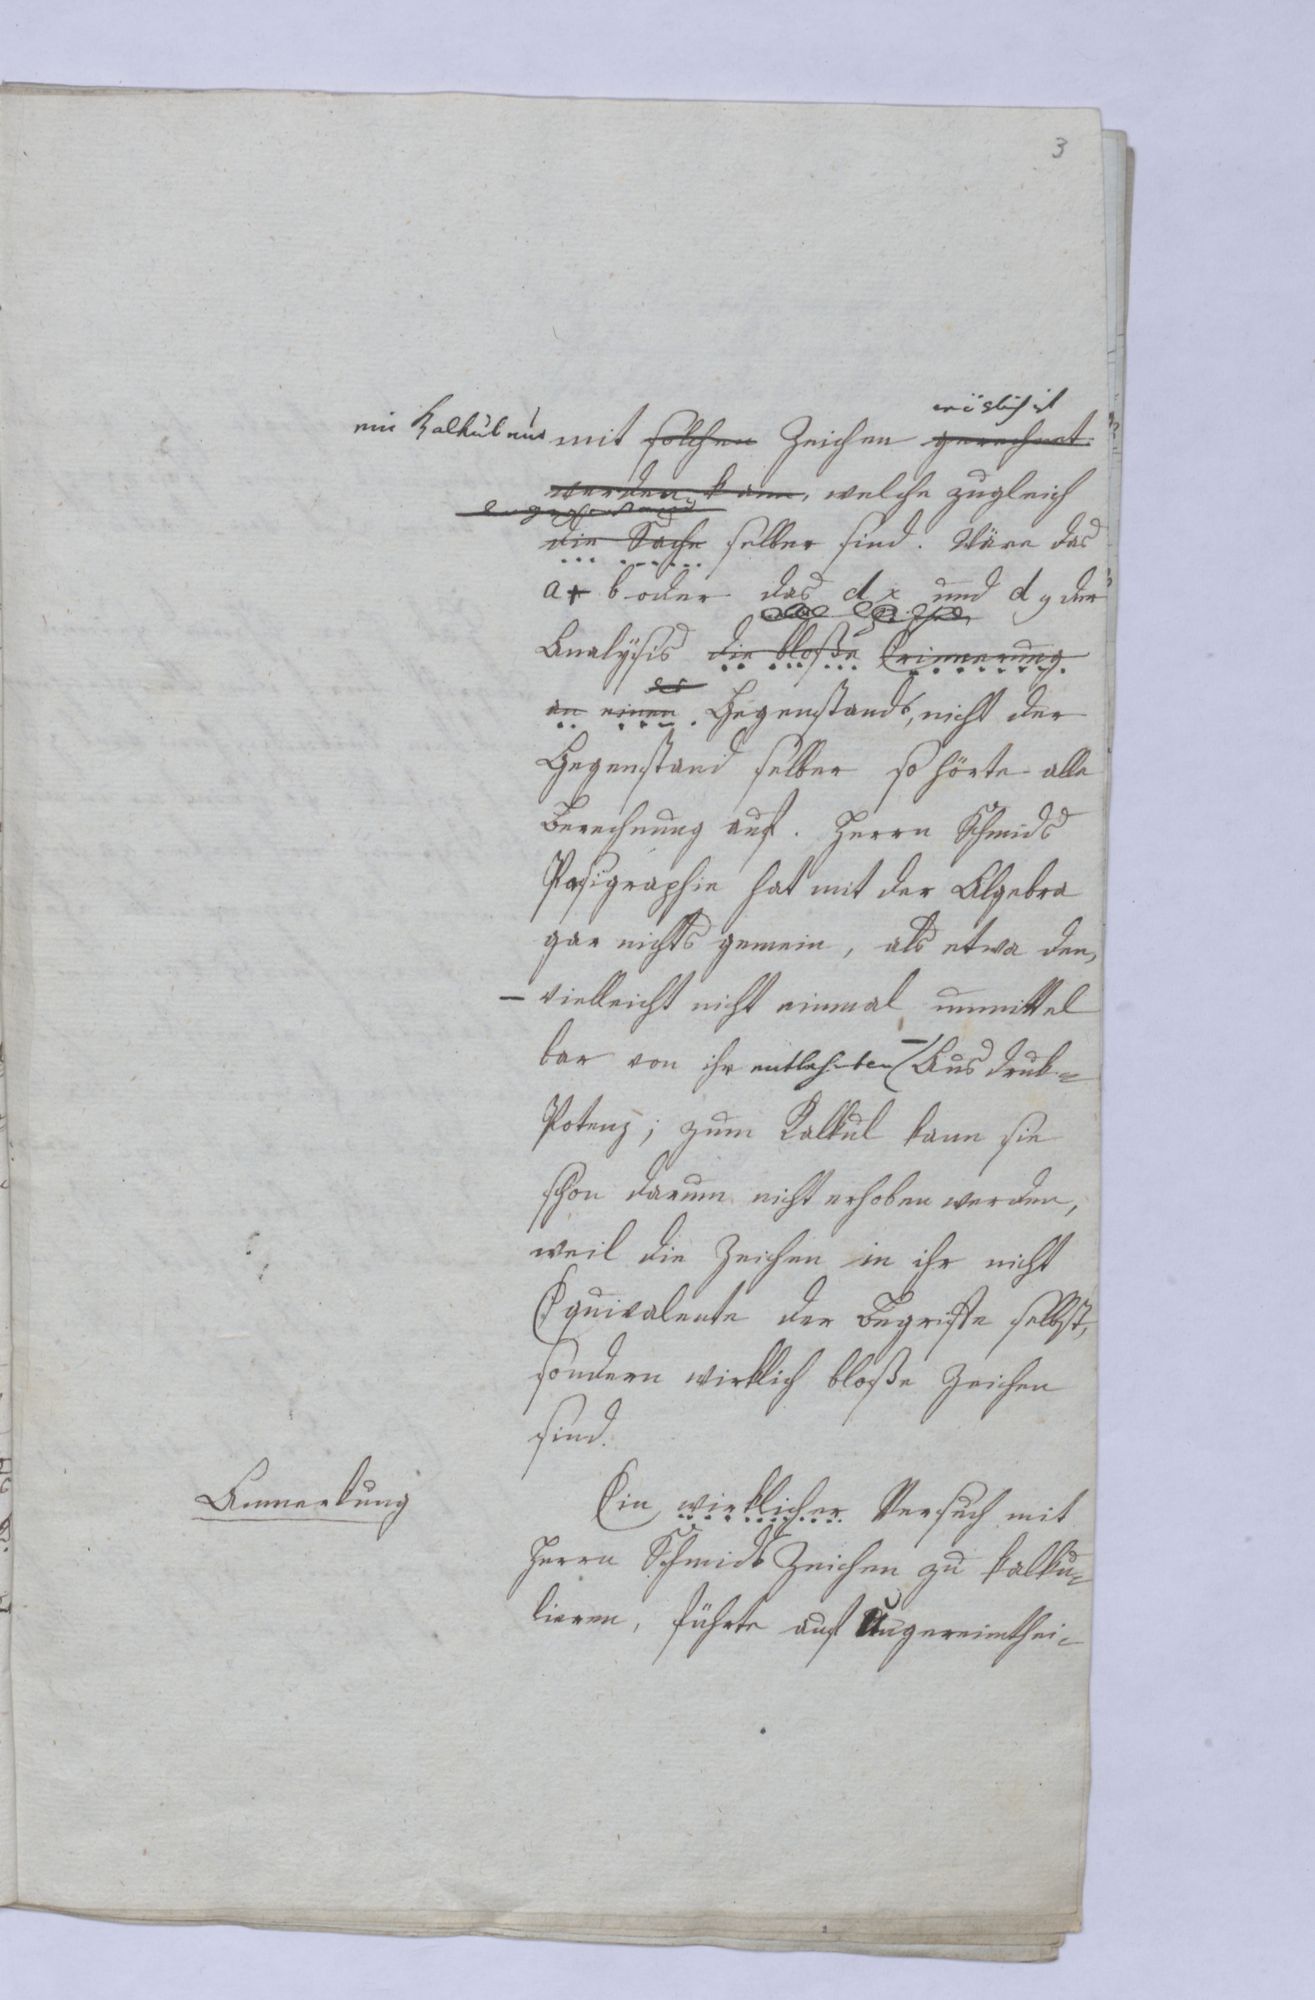 3
möglich ist
ein Kalkul nur mit solchen Zeichen gerechnet
werden kann, welche zugleich
die Sache selber sind. Wäre das
a + b oder das dx und dy der
Analysis die bloße Erinnerung
an einen Gegenstands, nicht der
Gegenstand selber so hörte alle
Berechnung auf. Herrn Schmids
Pasigraphie hat mit der Algebra
gar nichts gemein, als etwa den,
– vielleicht nicht einmal unmittel
bar von ihr entlehnten – Ausdruk-
Potenz; zum Kalkul kann sie
schon darum nicht erhoben werden,
weil die Zeichen in ihr nicht
Equivalente der Begriffe selbst,
sondern wirklich bloße Zeichen
sind.
Anmerkung
Ein wirklicher Versuch mit
Herrn Schmids Zeichen zu kalku-
lieren, führte auf Ungereimthei-